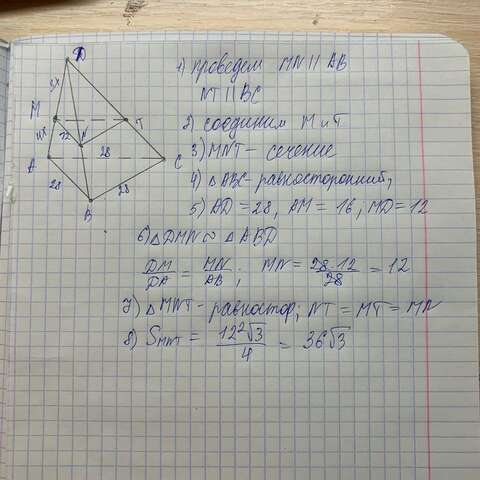 D
3x
M
4x
12
N
T
A
28
C
28
28
B
1) проведем MN || AB
NT || BC
2) соединим M и T
3) MNT - сечение
4) △ABC - равносторонний;
5) AD = 28, AM = 16, MD = 12
6) △DMN ∾ △ABD
DM/DA = MN/AB; MN = 28·12/28 = 12
7) △MNT - равностор; NT = MT = MN
8) S_MNT = 12²√3/4 = 36√3